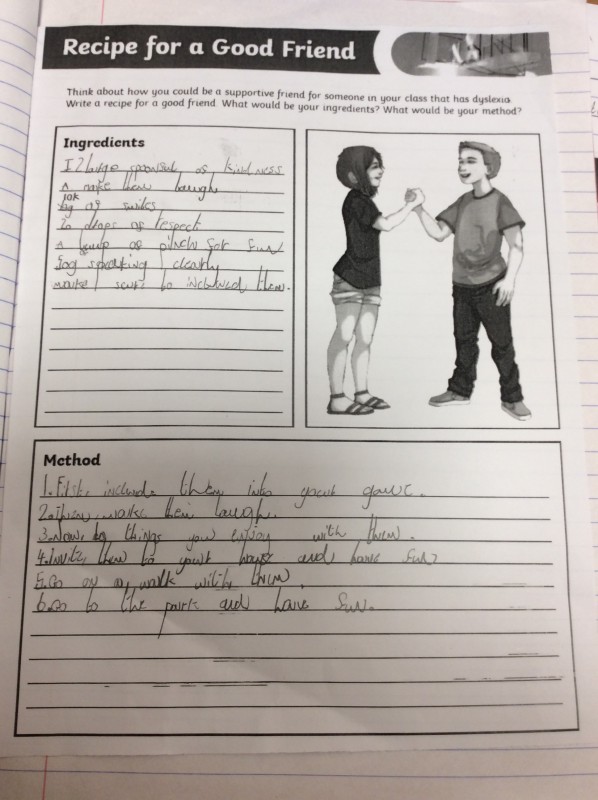 Recipe for a Good Friend
Think about how you could be a supportive friend for someone in your class that has dyslexia.
Write a recipe for a good friend. What would be your ingredients? What would be your method?
Ingredients
12 large of kindness
make them laugh
of smiles
20 drops of respect
A of pinch for fun
50g speaking clearly
make to included them.
Method
1. First, include them into your game.
2. Then, make their laugh.
3. Now, things you enjoy with them.
4. Invite them to your and have fun
5. Go on a walk with them.
6. Go to the park and have fun.